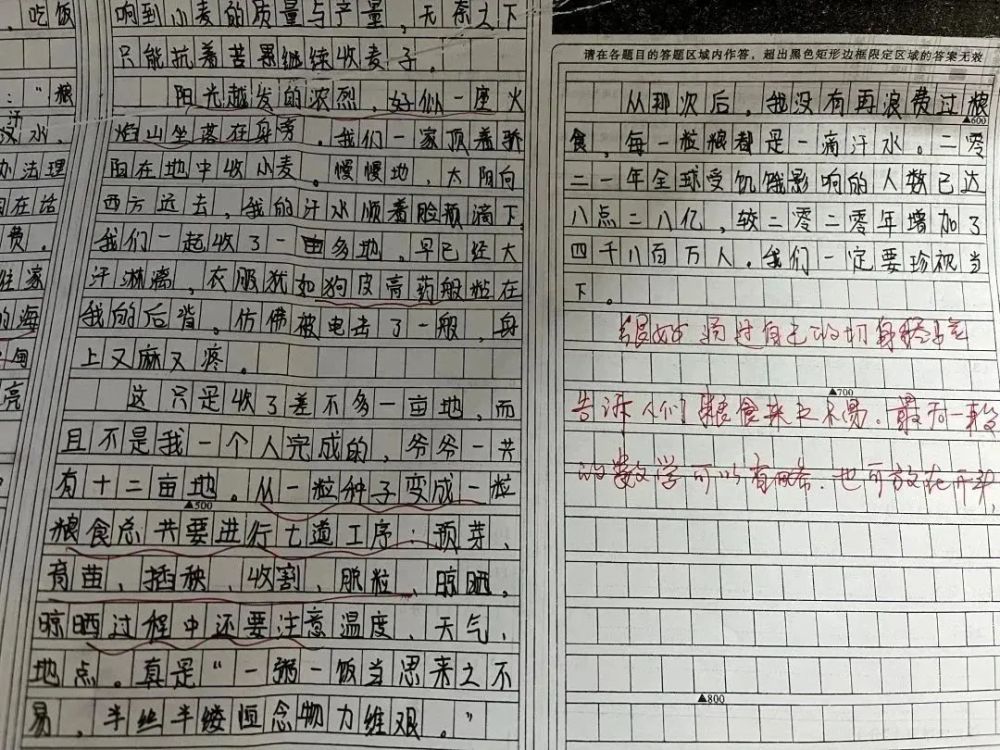 吃饭
:“粮
汗
汶水,
办法理
因在话
费。
往家
的海
甸
亮
响到小麦的质量与产量,无奈之下
只能抗着苦累继续收麦子。
阳光越发的浓烈,好似一座火
焰山坐落在身旁。我们一家顶着骄
阳在地中收小麦。慢慢地,太阳向
西方远去,我的汗水顺着脸颊滴下。
我们一起收了一亩多地,早已经大
汗淋漓,衣服犹如狗皮膏药般粘在
我的后背。仿佛被电击了一般,身
上又麻又疼。
这只是收了差不多一亩地,而
且不是我一个人完成的,爷爷一共
有十二亩地。从一粒种子变成一粒
▲500
粮食总共要进行七道工序:预芽、
育苗、插秧、收割、脱粒、晾晒。
晾晒过程中还要注意温度、天气、
地点。真是“一粥一饭当思来之不
易,半丝半缕恒念物力维艰。”
请在各题目的答题区域内作答,超出黑色矩形边框限定区域的答案无效
从那次后,我没有再浪费过粮
▲600
食,每一粒粮都是一滴汗水。二零
二一年全球受饥饿影响的人数已达
八点二八亿,较二零二零年增加了
四千八百万人。我们一定要珍视当
下。
很好 通过自己的切身经历
▲700
告诉人们粮食来之不易.最后一段
的数学可以省略.也可放在开头
▲800